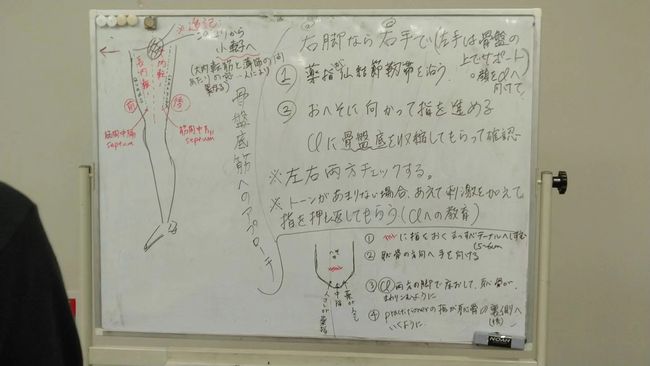 ※追記
このあたりから
小転子へ
(大内転筋と薄筋の間
あたりの
人により
異なる)
内転
前
後
筋間中隔
septum
筋間中隔
septum
骨盤底筋へのアプローチ
右脚なら右手で(左手は骨盤の
上でサポート)
顔をclへ
向けて
① 薬指 仙結節靭帯を沿う。
② おへそに向かって指を進める
clに骨盤底を収縮してもらって確認
※左右両方チェックする。
※トーンがあまりない場合、あえて刺激を加えて
指を押し返してもらう(clへの教育)
① に指をおく
② 恥骨の方向へ手を向ける
③ cl 両方の脚で床おして、恥骨が
ように
④ practitionerの指が恥骨の裏側へ
いくように
中指
NOAN